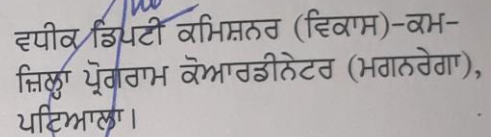 ਵਧੀਕ ਡਿਪਟੀ ਕਮਿਸ਼ਨਰ (ਵਿਕਾਸ)-ਕਮ-
ਜ਼ਿਲ੍ਹਾ ਪ੍ਰੋਗਰਾਮ ਕੋਆਰਡੀਨੇਟਰ (ਮਗਨਰੇਗਾ),
ਪਟਿਆਲਾ।